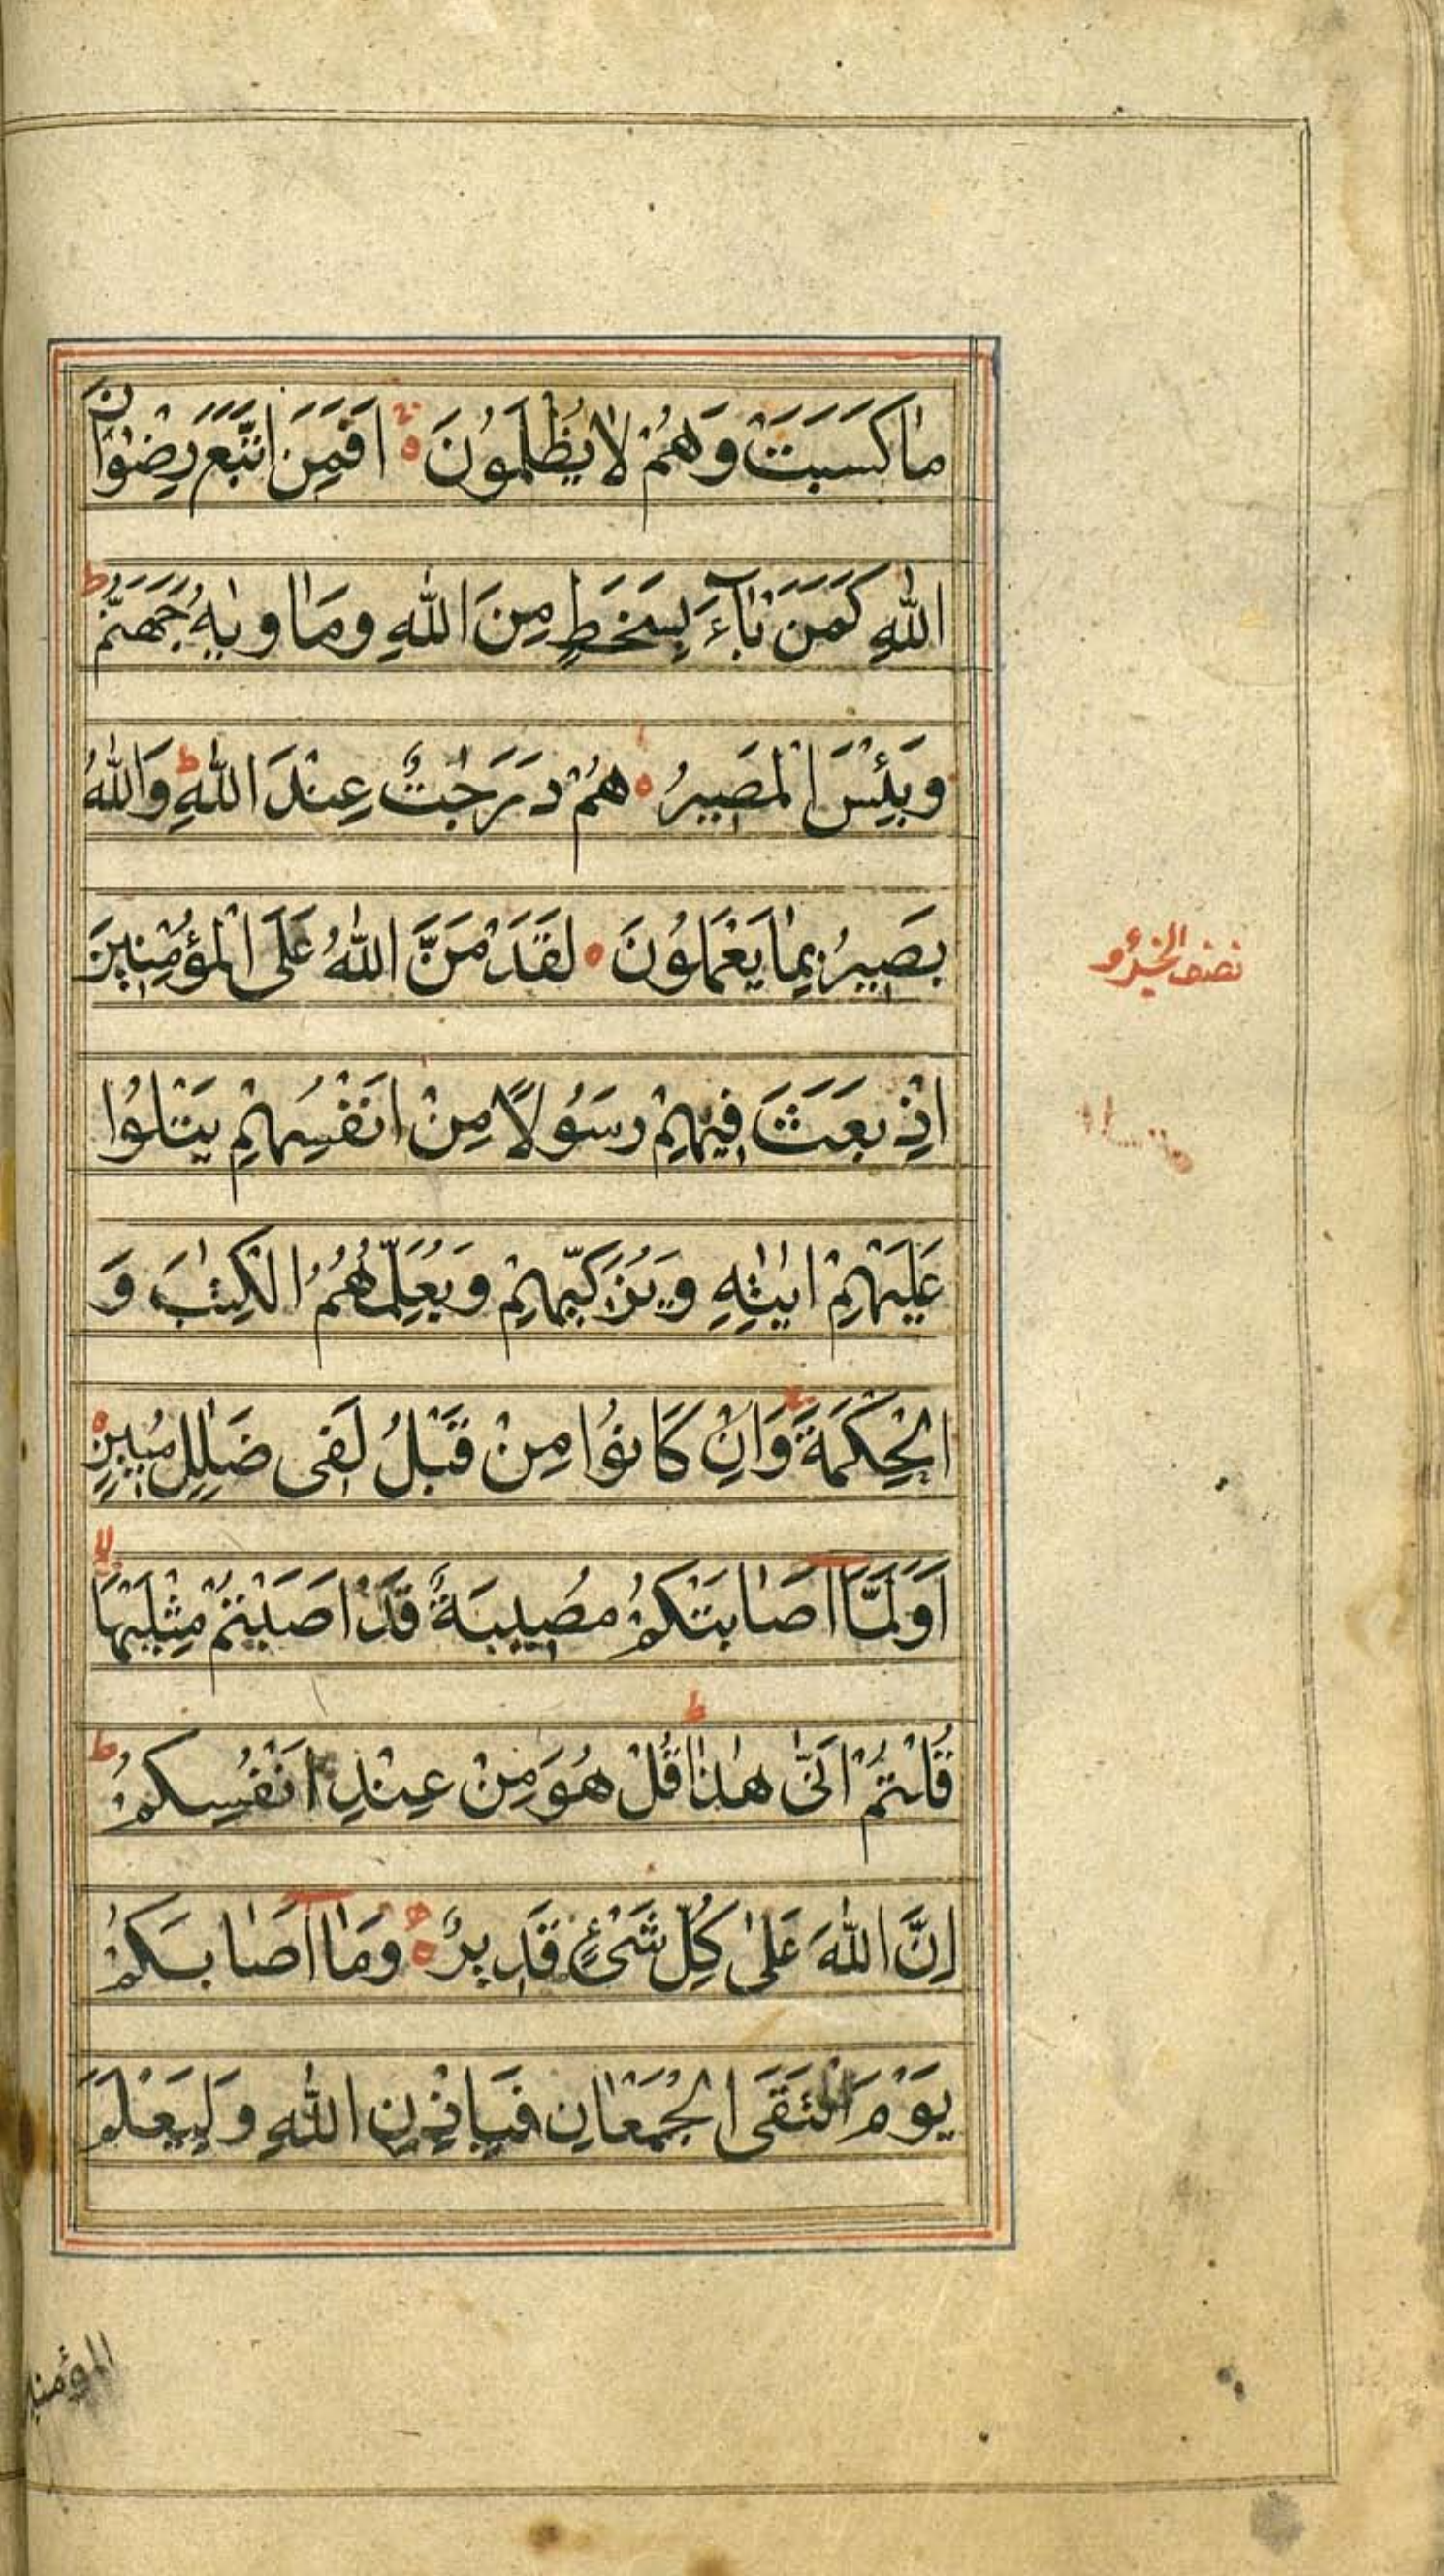 مَا كَسَبَتْ وَهُمْ لَا يُظْلَمُونَ ۝ اَفَمَنِ اتَّبَعَ رِضْوَانَ
اللّٰهِ كَمَنْ بَآءَ بِسَخَطٍ مِنَ اللّٰهِ وَمَاْوٰيهُ جَهَنَّمُ ط
وَبِئْسَ الْمَصِيرُ ۝ هُمْ دَرَجٰتٌ عِنْدَ اللّٰهِ ط وَاللّٰهُ
بَصِيرٌ بِمَا يَعْمَلُونَ ۝ لَقَدْ مَنَّ اللّٰهُ عَلَى الْمُؤْمِنِينَ
نصف الجزو
اِذْ بَعَثَ فِيهِمْ رَسُولًا مِنْ اَنْفُسِهِمْ يَتْلُوا
عَلَيْهِمْ اٰيٰتِهٖ وَيُزَكِّيهِمْ وَيُعَلِّمُهُمُ الْكِتٰبَ وَ
الْحِكْمَةَ وَاِنْ كَانُوا مِنْ قَبْلُ لَفِى ضَلٰلٍ مُبِينٍ ۝
اَوَلَمَّآ اَصَابَتْكُمْ مُصِيبَةٌ قَدْ اَصَبْتُمْ مِثْلَيْهَا لا
قُلْتُمْ اَنّٰى هٰذَا ط قُلْ هُوَ مِنْ عِنْدِ اَنْفُسِكُمْ ط
اِنَّ اللّٰهَ عَلٰى كُلِّ شَىْءٍ قَدِيرٌ ۝ وَمَآ اَصَابَكُمْ
يَوْمَ الْتَقَى الْجَمْعَانِ فَبِاِذْنِ اللّٰهِ وَلِيَعْلَمَ